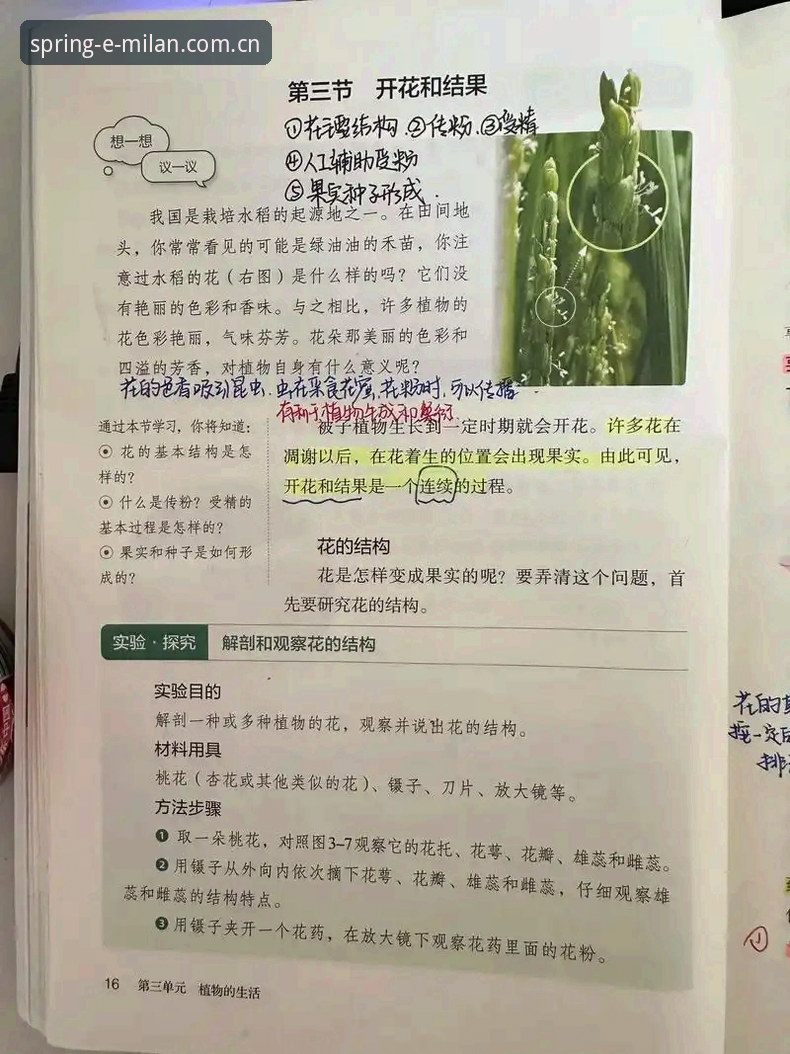 spring-e-milan.com.cn
第三节 开花和结果
①花主要结构.②传粉.③受精
④人工辅助授粉
⑤果实种子形成.
想一想
议一议
我国是栽培水稻的起源地之一。在田间地
头，你常常看见的可能是绿油油的禾苗，你注
意过水稻的花（右图）是什么样的吗？它们没
有艳丽的色彩和香味。与之相比，许多植物的
花色彩艳丽，气味芬芳。花朵那美丽的色彩和
四溢的芳香，对植物自身有什么意义呢？
花的色香吸引昆虫.虫在采食花蜜.花粉时.可以传播
有利于植物生成和繁衍.
通过本节学习，你将知道：
⊙ 花的基本结构是怎
样的？
⊙ 什么是传粉？受精的
基本过程是怎样的？
⊙ 果实和种子是如何形
成的？
被子植物生长到一定时期就会开花。许多花在
凋谢以后，在花着生的位置会出现果实。由此可见，
开花和结果是一个连续的过程。
花的结构
花是怎样变成果实的呢？要弄清这个问题，首
先要研究花的结构。
实验·探究 解剖和观察花的结构
实验目的
解剖一种或多种植物的花，观察并说出花的结构。
材料用具
桃花（杏花或其他类似的花）、镊子、刀片、放大镜等。
方法步骤
❶ 取一朵桃花，对照图3-7观察它的花托、花萼、花瓣、雄蕊和雌蕊。
❷ 用镊子从外向内依次摘下花萼、花瓣、雄蕊和雌蕊，仔细观察雄
蕊和雌蕊的结构特点。
❸ 用镊子夹开一个花药，在放大镜下观察花药里面的花粉。
16 第三单元 植物的生活
花的
一定
排
①